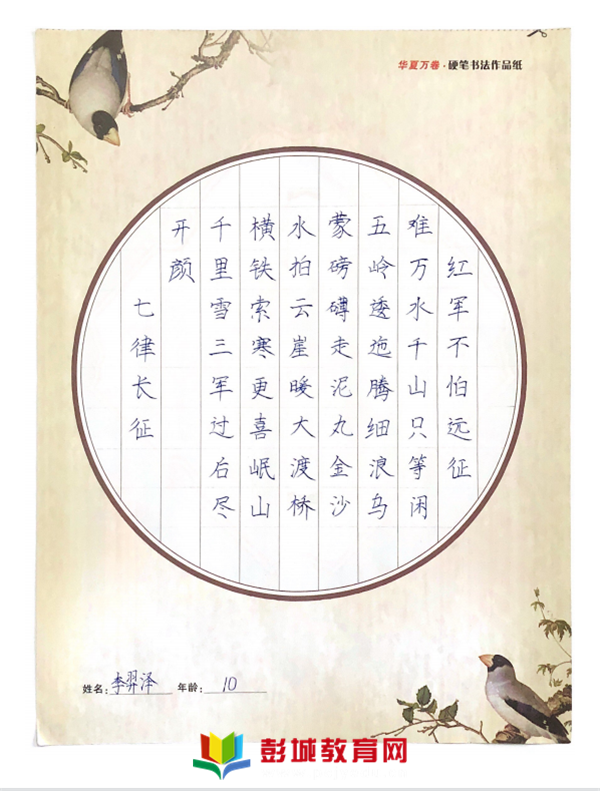 华夏万卷·硬笔书法作品纸
红军不怕远征
难万水千山只等闲
五岭逶迤腾细浪乌
蒙磅礴走泥丸金沙
水拍云崖暖大渡桥
横铁索寒更喜岷山
千里雪三军过后尽
开颜
七律长征
姓名:李羿泽 年龄:10
彭城教育网